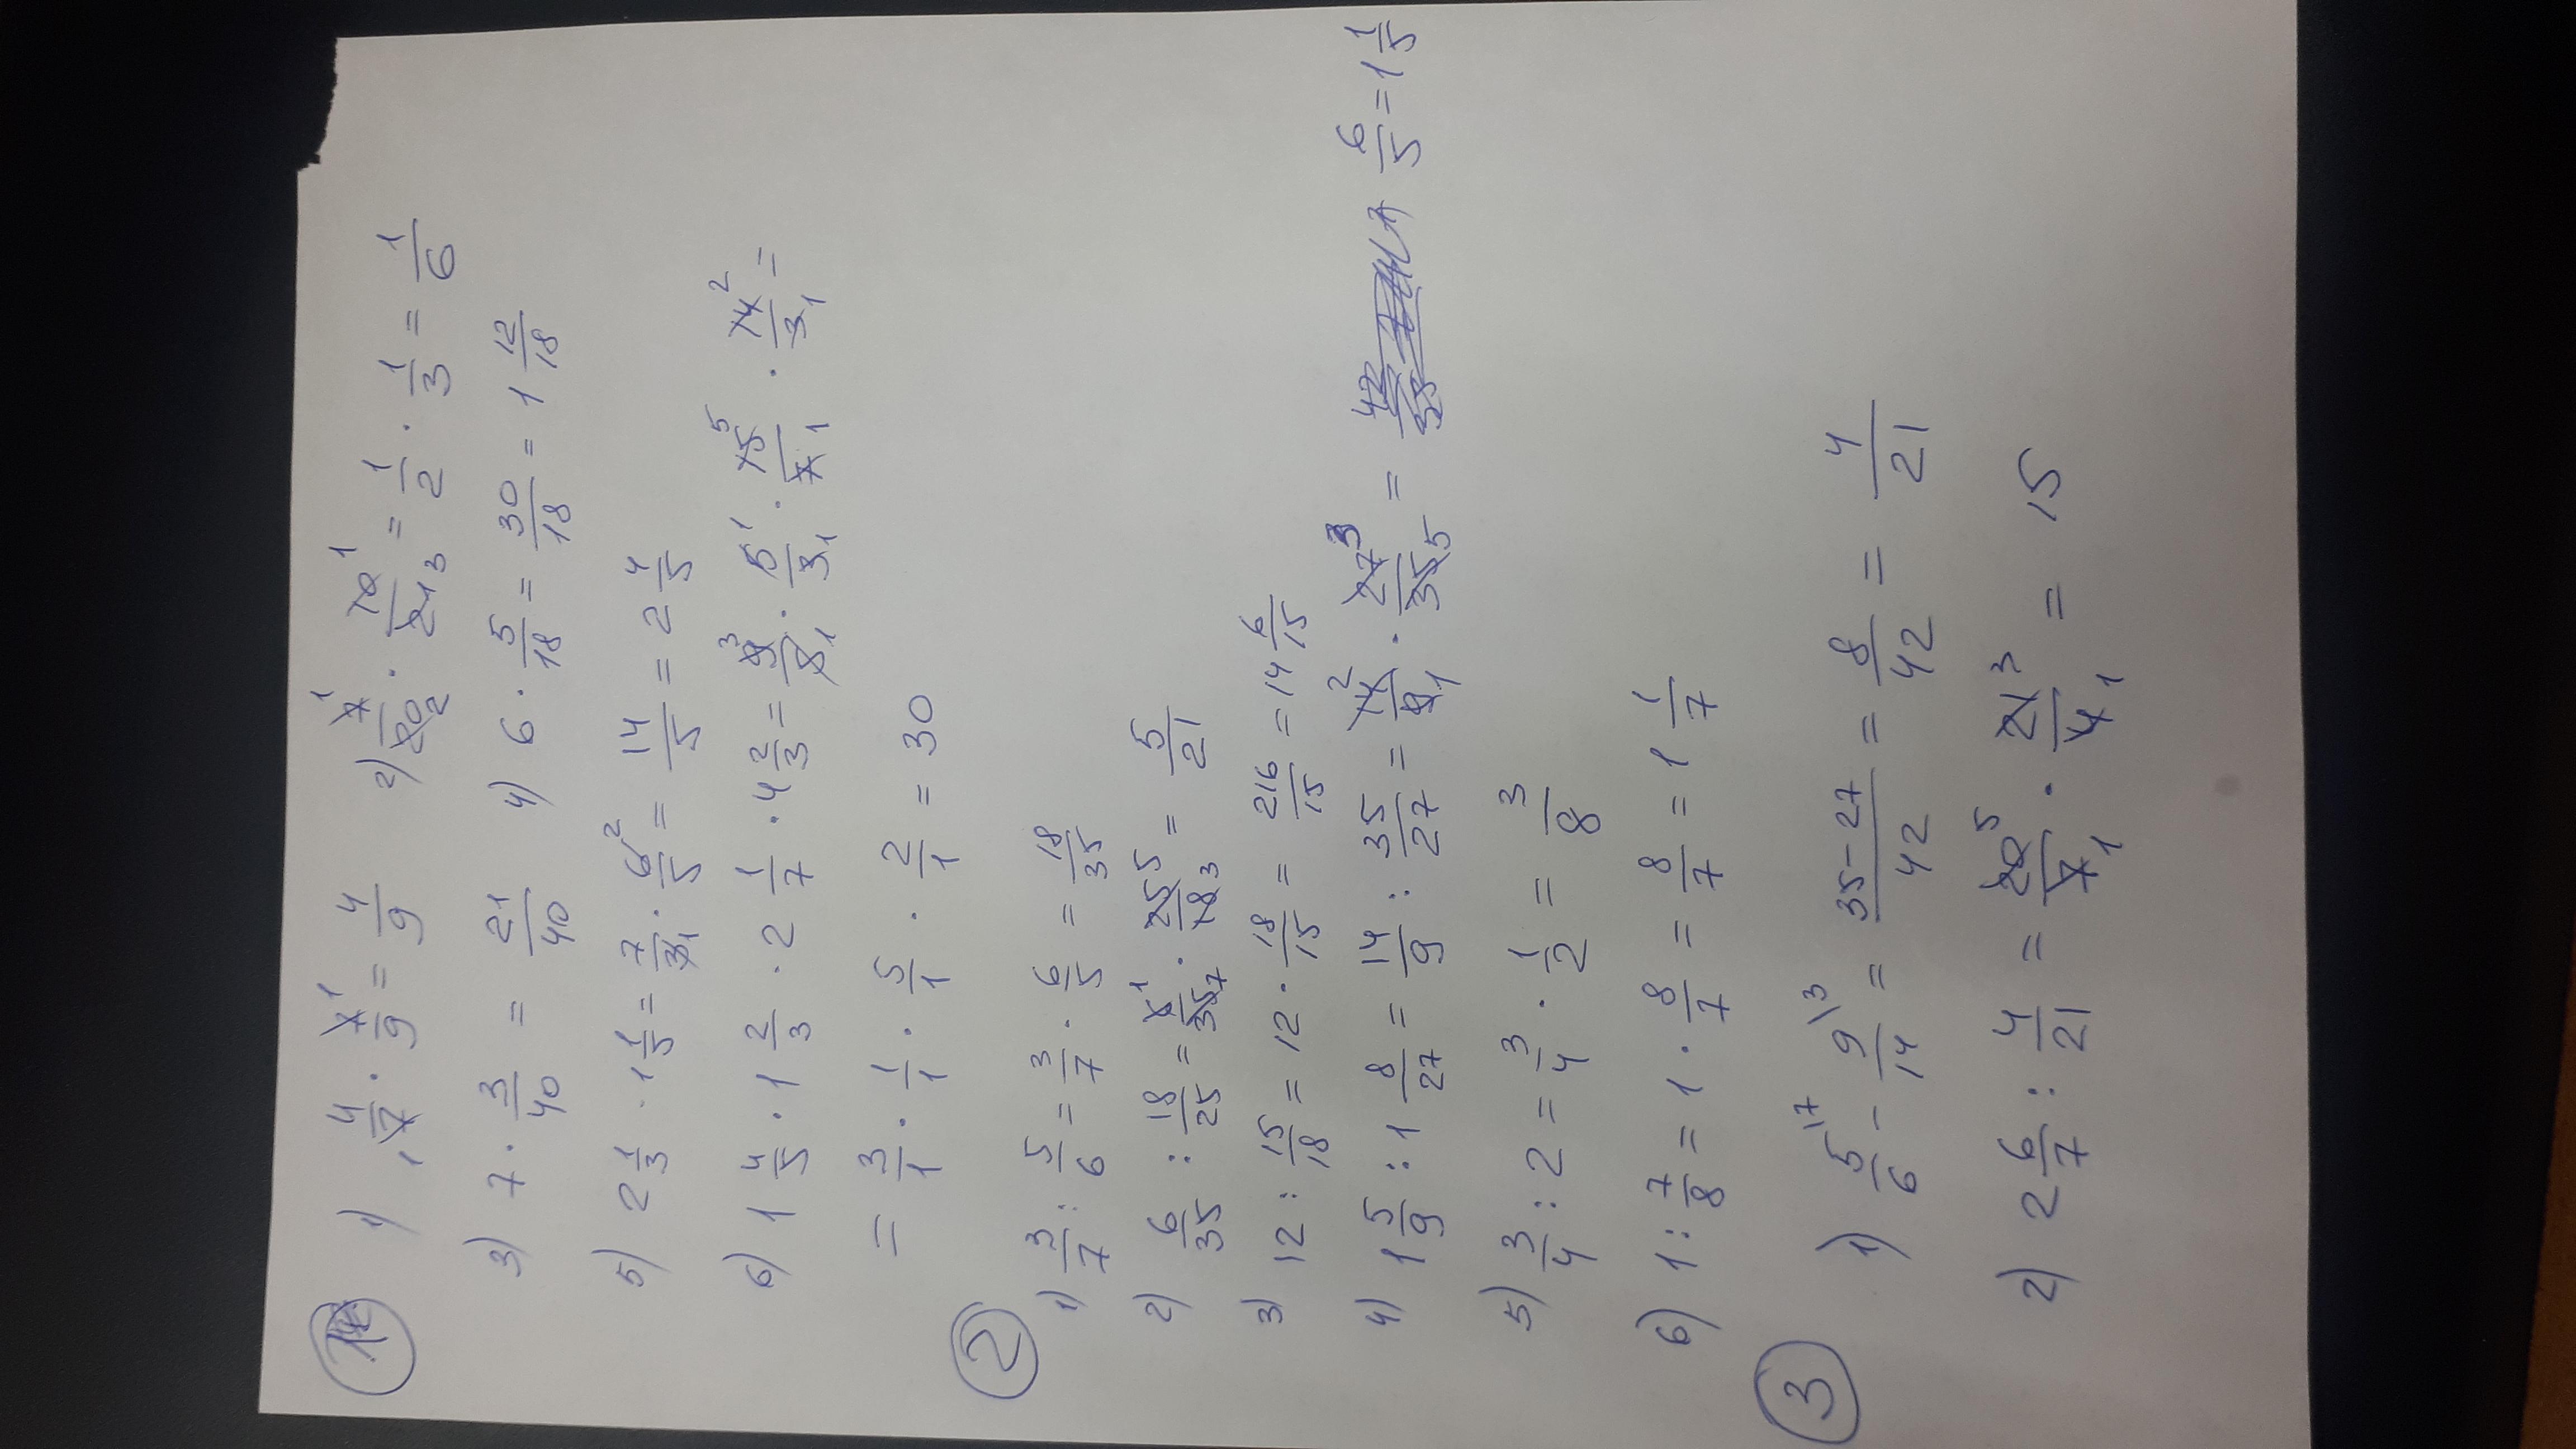 1
1) 4/7 · 7/9 = 4/9 2) 7/20 · 10/21 = 1/2 · 1/3 = 1/6
3) 7 · 3/40 = 21/40 4) 6 · 5/18 = 30/18 = 1 12/18
5) 2 1/3 · 1 1/5 = 7/3 · 6/5 = 14/5 = 2 4/5
6) 1 4/5 · 1 2/3 · 2 1/7 · 4 2/3 = 9/5 · 5/3 · 15/7 · 14/3 =
= 3/1 · 1/1 · 5/1 · 2/1 = 30
2
1) 3/7 : 5/6 = 3/7 · 6/5 = 18/35
2) 6/35 : 18/25 = 6/35 · 25/18 = 5/21
3) 12 : 15/18 = 12 · 18/15 = 216/15 = 14 6/15
4) 1 5/9 : 1 8/27 = 14/9 : 35/27 = 14/9 · 27/35 = 6/5 = 1 1/5
5) 3/4 : 2 = 3/4 · 1/2 = 3/8
6) 1 : 7/8 = 1 · 8/7 = 8/7 = 1 1/7
3
1) 5/6 \7 - 9/14 \3 = 35-27/42 = 8/42 = 4/21
2) 2 6/7 : 4/21 = 20/7 · 21/4 = 15